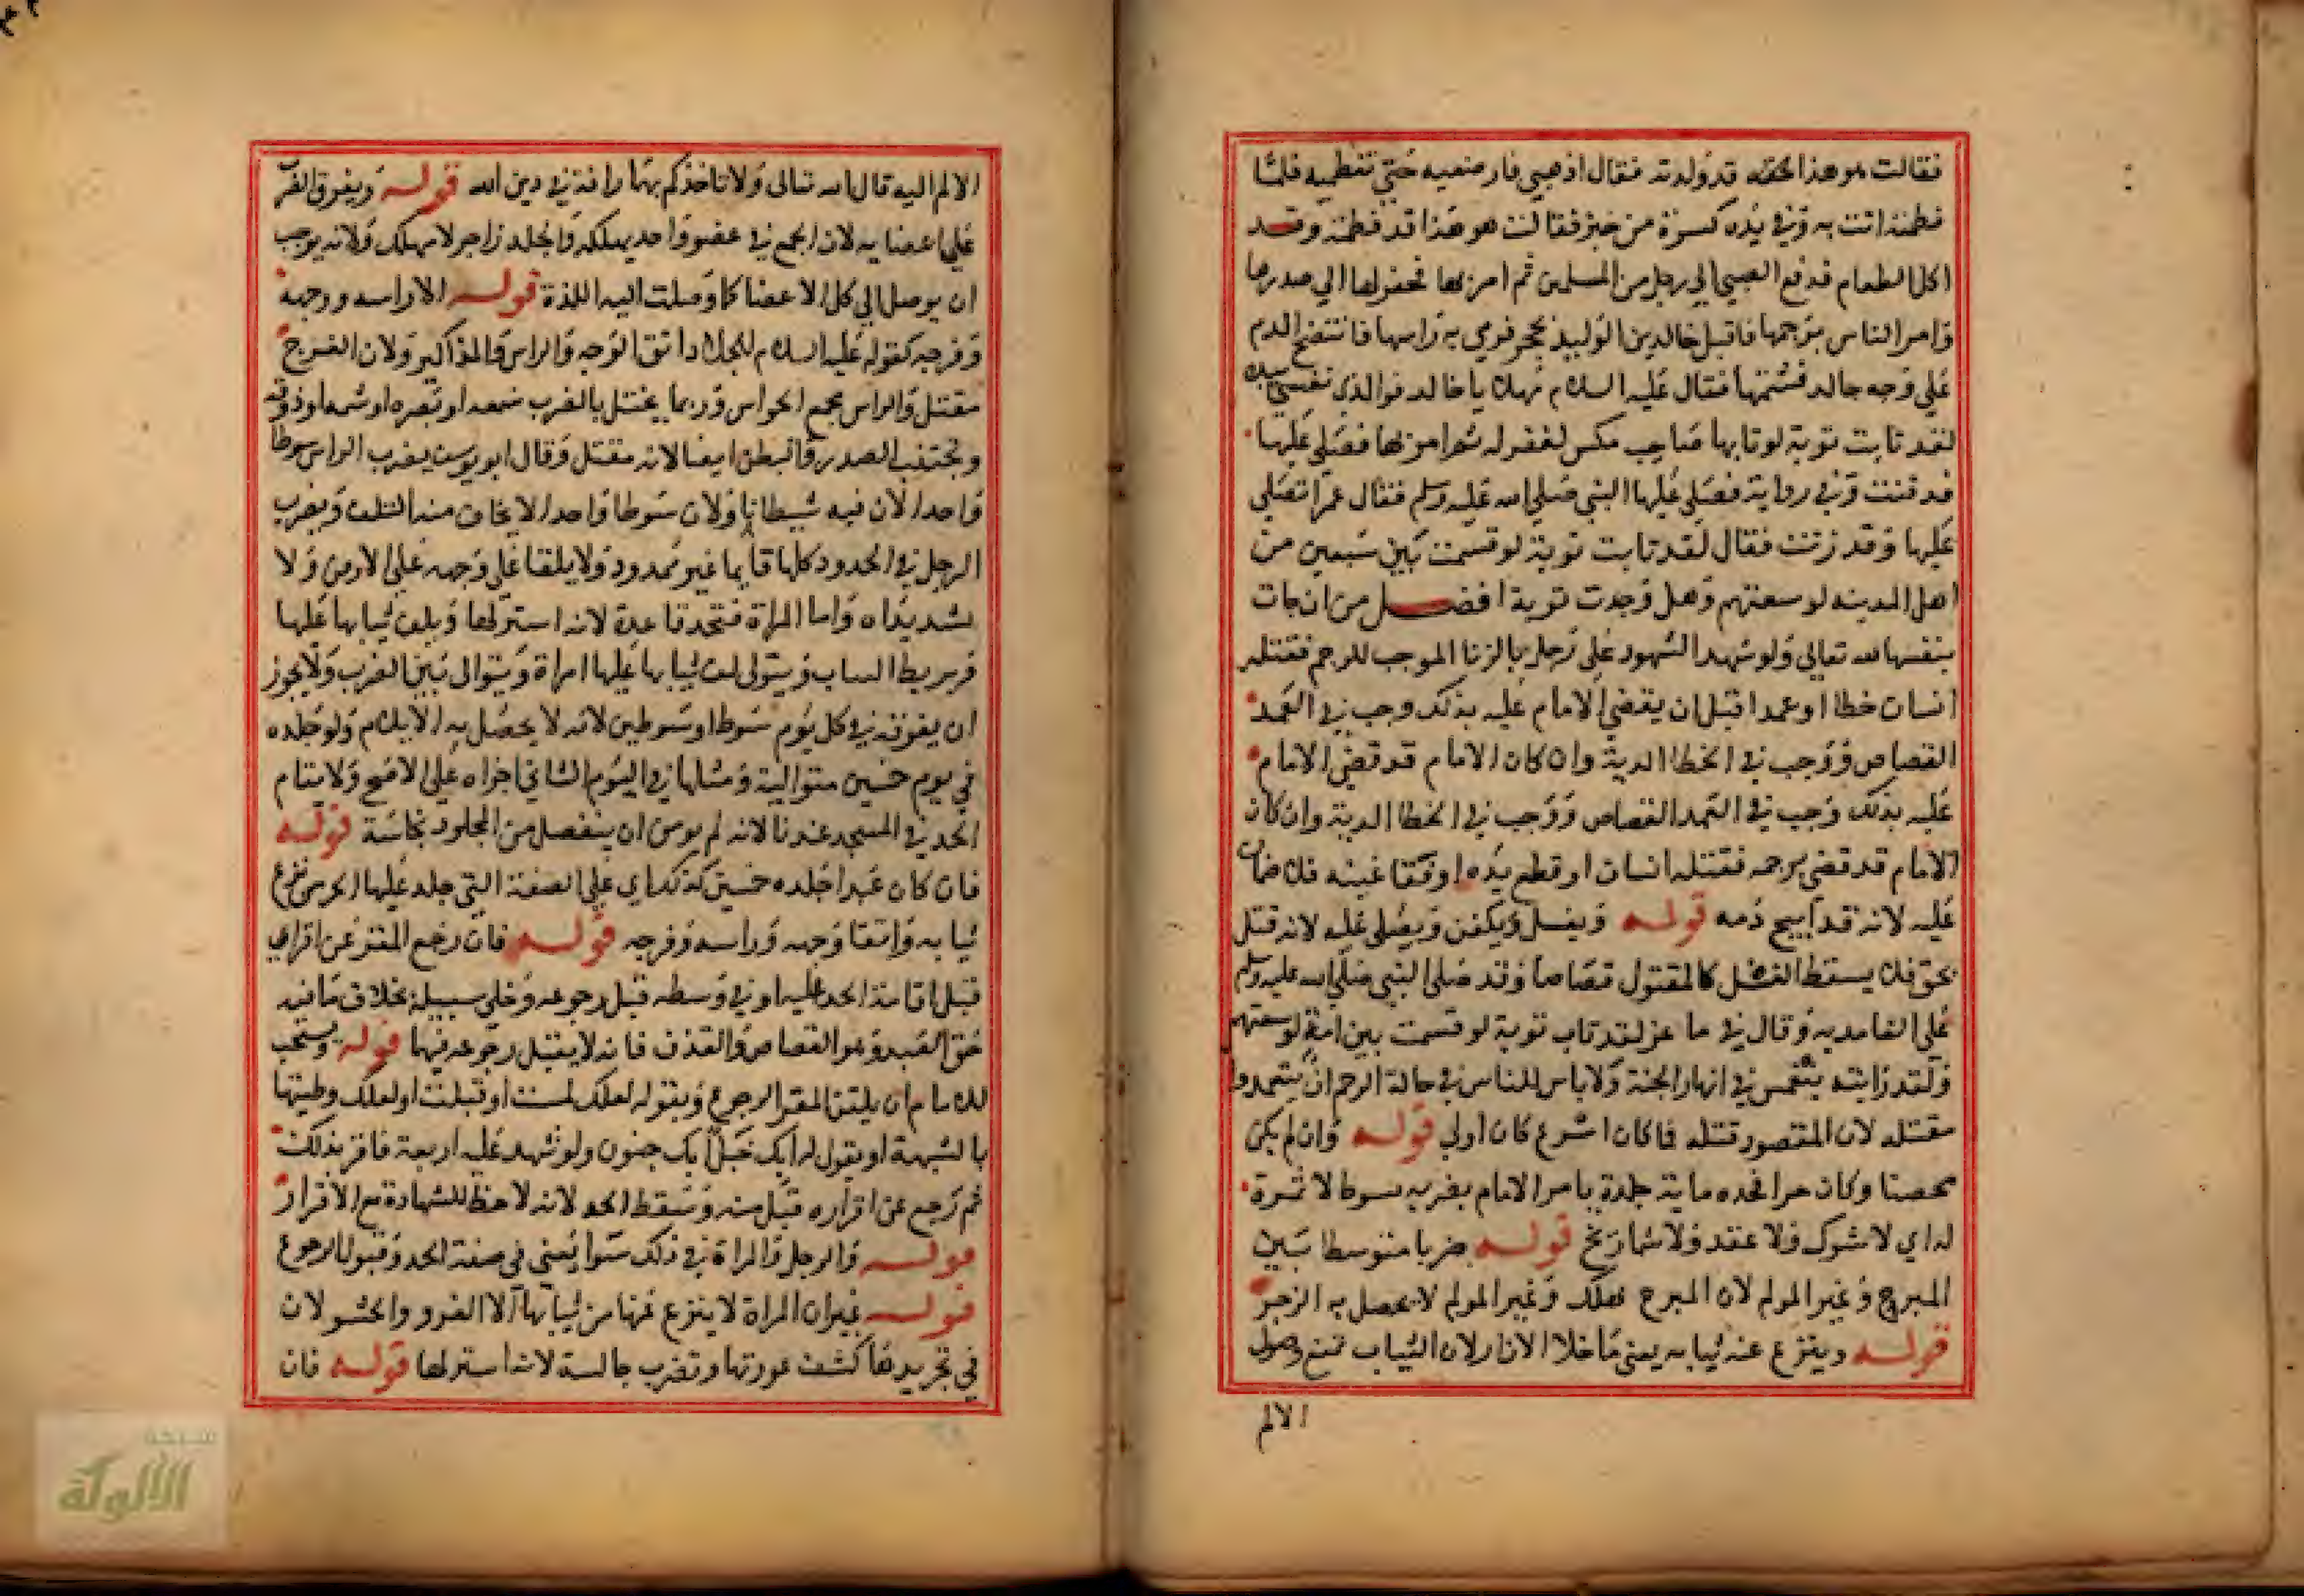 فقالت هو هذا قد ولدته فقال اذهبي فارضعيه حتي تفطميه فلما
فطمته اتت به وفي يده كسرة من خبز فقالت هو هذا قد فطمته وقد
اكل الطعام فدفع الصبي الي رجل من المسلمين ثم امر بها فحفر لها الي صدرها
وامر الناس برجمها فاقبل خالد بن الوليد بحجر فرمي به راسها فانتضح الدم
علي وجه خالد فشتمها فقال عليه السلام مهلا يا خالد فوالذي نفسي بيده
لقد تابت توبة لو تابها صاحب مكس لغفر له ثم امر بها فصلي عليها
فدفنت وفي رواية فصلي عليها النبي صلي الله عليه وسلم فقال عمر اتصلي
عليها وقد زنت فقال لقد تابت توبة لو قسمت بين سبعين من
اهل المدينه لوسعتهم وهل وجدت توبة افضل من ان جات
بنفسها لله تعالي ولو شهد الشهود علي رجل بالزنا الموجب للرجم فقتله
انسان خطا او عمدا قبل ان يقضي الامام عليه بذلك وجب في العمد
القصاص ووجب في الخطا الدية وان كان الامام قد قضي الامام
عليه بذلك وجب في العمد القصاص ووجب في الخطا الدية وان كان
الامام قد قضي برجمه فقتله انسان او قطع يده او فقا عينه فلا ضمان
عليه لانه قد ابيح دمه قوله ويغسل ويكفن ويصلي عليه لانه قتل
بحق فلا يسقط الغسل كالمقتول قصاصا وقد صلي النبي صلي الله عليه وسلم
علي الغامديه وقال في ماعز لقد تاب توبة لو قسمت بين امة لوسعتهم
ولقد رايته ينغمس في انهار الجنة ولا باس للناس في حالة الرجم ان يتعمدوا
مقتله لان المقصود قتله فما كان اسرع كان اولي قوله وان لم يكن
محصنا وكان حرا فحده ماية جلدة يامر الامام بضربه بسوط لا ثمرة
له اي لا شوك ولا عقد ولا شماريخ قوله ضربا متوسطا بين
المبرح وغير المولم لان المبرح يهلك وغير المولم لا يحصل به الزجر
قوله وينزع عنه ثيابه يعني ما خلا الازار لان الثياب تمنع وصول
الالم
الالم اليه قال الله تعالي ولا تاخذكم بهما رافة في دين الله قوله ويفرق الضرب
علي اعضايه لان الجمع في عضو واحد يهلكه والجلد زاجر لا مهلك ولانه يوجب
ان يوصل الي كل الاعضا كما وصلت اليه اللذة قوله الا راسه ووجهه
وفرجه كقوله عليه السلام للجلاد اتق الوجه والراس والمذاكير ولان الفرج
مقتل والراس مجمع الحواس وربما يختل بالضرب سمعه او بصره او شمه او ذوقه
ويجتنب الصدر والبطن ايضا لانه مقتل وقال ابو يوسف يضرب الراس سوطا
واحدا لان فيه شيطانا ولان سوطا واحدا لا يخاف منه التلف ويضرب
الرجل في الحدود كلها قايما غير ممدود ولا يلقا علي وجهه علي الارض ولا
يشد يداه واما المراة فتحد قاعدة لانه استر لها ويلف ثيابها عليها
وتربط الثياب ويتولي لف ثيابها عليها امراة ويتوالي بين الضرب ولا يجوز
ان يفرقه في كل يوم سوطا او سوطين لانه لا يحصل به الايلام ولو جلده
في يوم خمسين متوالية ومثلها في اليوم الثاني اجزاه علي الاصح ولا يقام
الحد في المسجد عندنا لانه لم يومن ان ينفصل من المجلود نجاسة قوله
فان كان عبدا جلده خمسين كذلك اي علي الصفة التي جلد عليها الحر من نزع
ثيابه واتقا وجهه وراسه وفرجه قوله فان رجع المقر عن اقراره
قبل اقامة الحد عليه او في وسطه قبل رجوعه وخلي سبيله بخلاف ما فيه
حق العبد وهو القصاص والقذف فانه لا يقبل رجوعه فيها قوله ويستحب
للامام ان يلقن المقر الرجوع ويقول له لعلك لمست او قبلت او لعلك وطيتها
بالشبهة او يقول له ابك خبل ابك جنون ولو شهد عليه اربعة فاقر بذلك
ثم رجع عن اقراره قبل منه وسقط الحد لانه لا حظ للشهادة مع الاقرار
قوله والرجل والمراة في ذلك سوا يعني في صفة الحد وقبول الرجوع
قوله غير ان المراة لا ينزع عنها من ثيابها الا الفرو والحشو لان
في تجريدها كشف عورتها وتضرب جالسة لانه استر لها قوله فان
شبكة
الألوكة